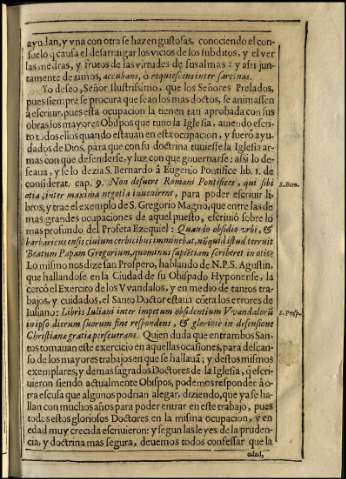 ayudan, y vna con otra se hazen gustosas, conociendo el con-
suelo q̃ causa el desarraigar los vicios de los subditos, y el ver
las medras, y frutos de las virtudes de sus almas: y assi jun-
tamente de ambos, accubans, ò requiescens inter sarcinas.
Yo deseo, Señor Ilustrissimo, que los Señores Prelados,
pues siempre se procura que sean los mas doctos, se animassen
à escriuir, pues esta ocupacion la tienen tan aprobada con sus
obras los mayores Obispos que tuuo la Iglesia, auiendo escri-
to todos ellos quando estauan en esta ocupacion, y fuerō ayu-
dados de Dios, para que con su doctrina tuuiesse la Iglesia ar-
mas con que defenderse, y luz con que gouernarse: assi lo de-
seaua, y se lo dezia S. Bernardo à Eugenio Pontifice lib. 1. de
considerat. cap. 9. Non defuere Romani Pontifices, qui sibi
otia, inter maxima negotia inuenirent, para poder escriuir li-
S. Bern.
bros, y trae el exemplo de S. Gregorio Magno, que entre las de
mas grandes ocupaciones de aquel puesto, escriuiò sobre lo
mas profundo del Profeta Ezequiel: Quando obsidio vrbi, &
barbaricus ensis ciuium ceruicibus imminebat, nūquid istud terruit
Beatum Papam Gregorium, quominus sapiētiam scriberet in otio?
Lo mismo nos dize san Prospero, hablando de N.P.S. Agustin,
que hallandose en la Ciudad de su Obispado Hyponense, la
cercò el Exercito de los Vvandalos, y en medio de tantos tra-
bajos, y cuidados, el Santo Doctor estaua cōtra los errores de
Iuliano: Libris Iuliani inter impetum obsidentium Vvandalorū
S. Prosp.
in ipso dierum suorum fine respondens, & gloriosè in defensione
Christianæ gratiæ perseuerans. Quien duda que entrambos San-
tos tomauan este exercicio en aquellas ocasiones, para descan-
so de los mayores trabajos en que se hallauā; y destos mismos
exemplares, y demas sagrados Doctores de la Iglesia, q̃ escri-
uieron siendo actualmente Obispos, podemos responder à o-
tra escusa que algunos podrian alegar, diziendo, que ya se ha-
llan con muchos años para poder entrar en este trabajo, pues
todos estos gloriosos Doctores en la misma ocupacion, y en
edad muy crecida escriuieron: y segun las leyes de la pruden-
cia, y doctrina mas segura, deuemos todos confessar que la
edad,